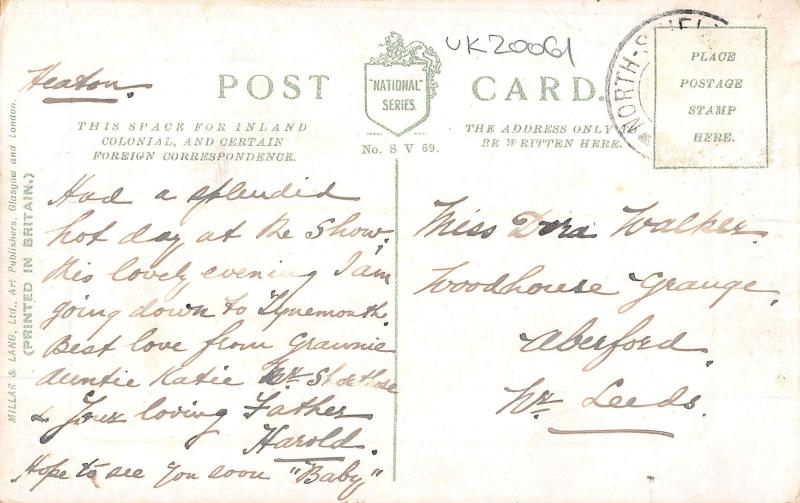 UK20061
NORTH-SHIEL
Heaton.
POST CARD.
"NATIONAL"
SERIES.
No. S V 69.
PLACE
POSTAGE
STAMP
HERE.
THIS SPACE FOR INLAND
COLONIAL, AND CERTAIN
FOREIGN CORRESPONDENCE.
THE ADDRESS ONLY
BE WRITTEN HERE.
MILLAR & LANG, Ltd., Art Publishers, Glasgow and London.
(PRINTED IN BRITAIN.)
Had a splendid
hot day at the Show.
this lovely evening I am
going down to Tynemouth.
Best love from Grannie
Auntie Katie
& Your loving Father
Harold.
Hope to see you soon "Baby"
Miss Dora Walker
Woodhouse Grange,
Aberford,
Nr Leeds.